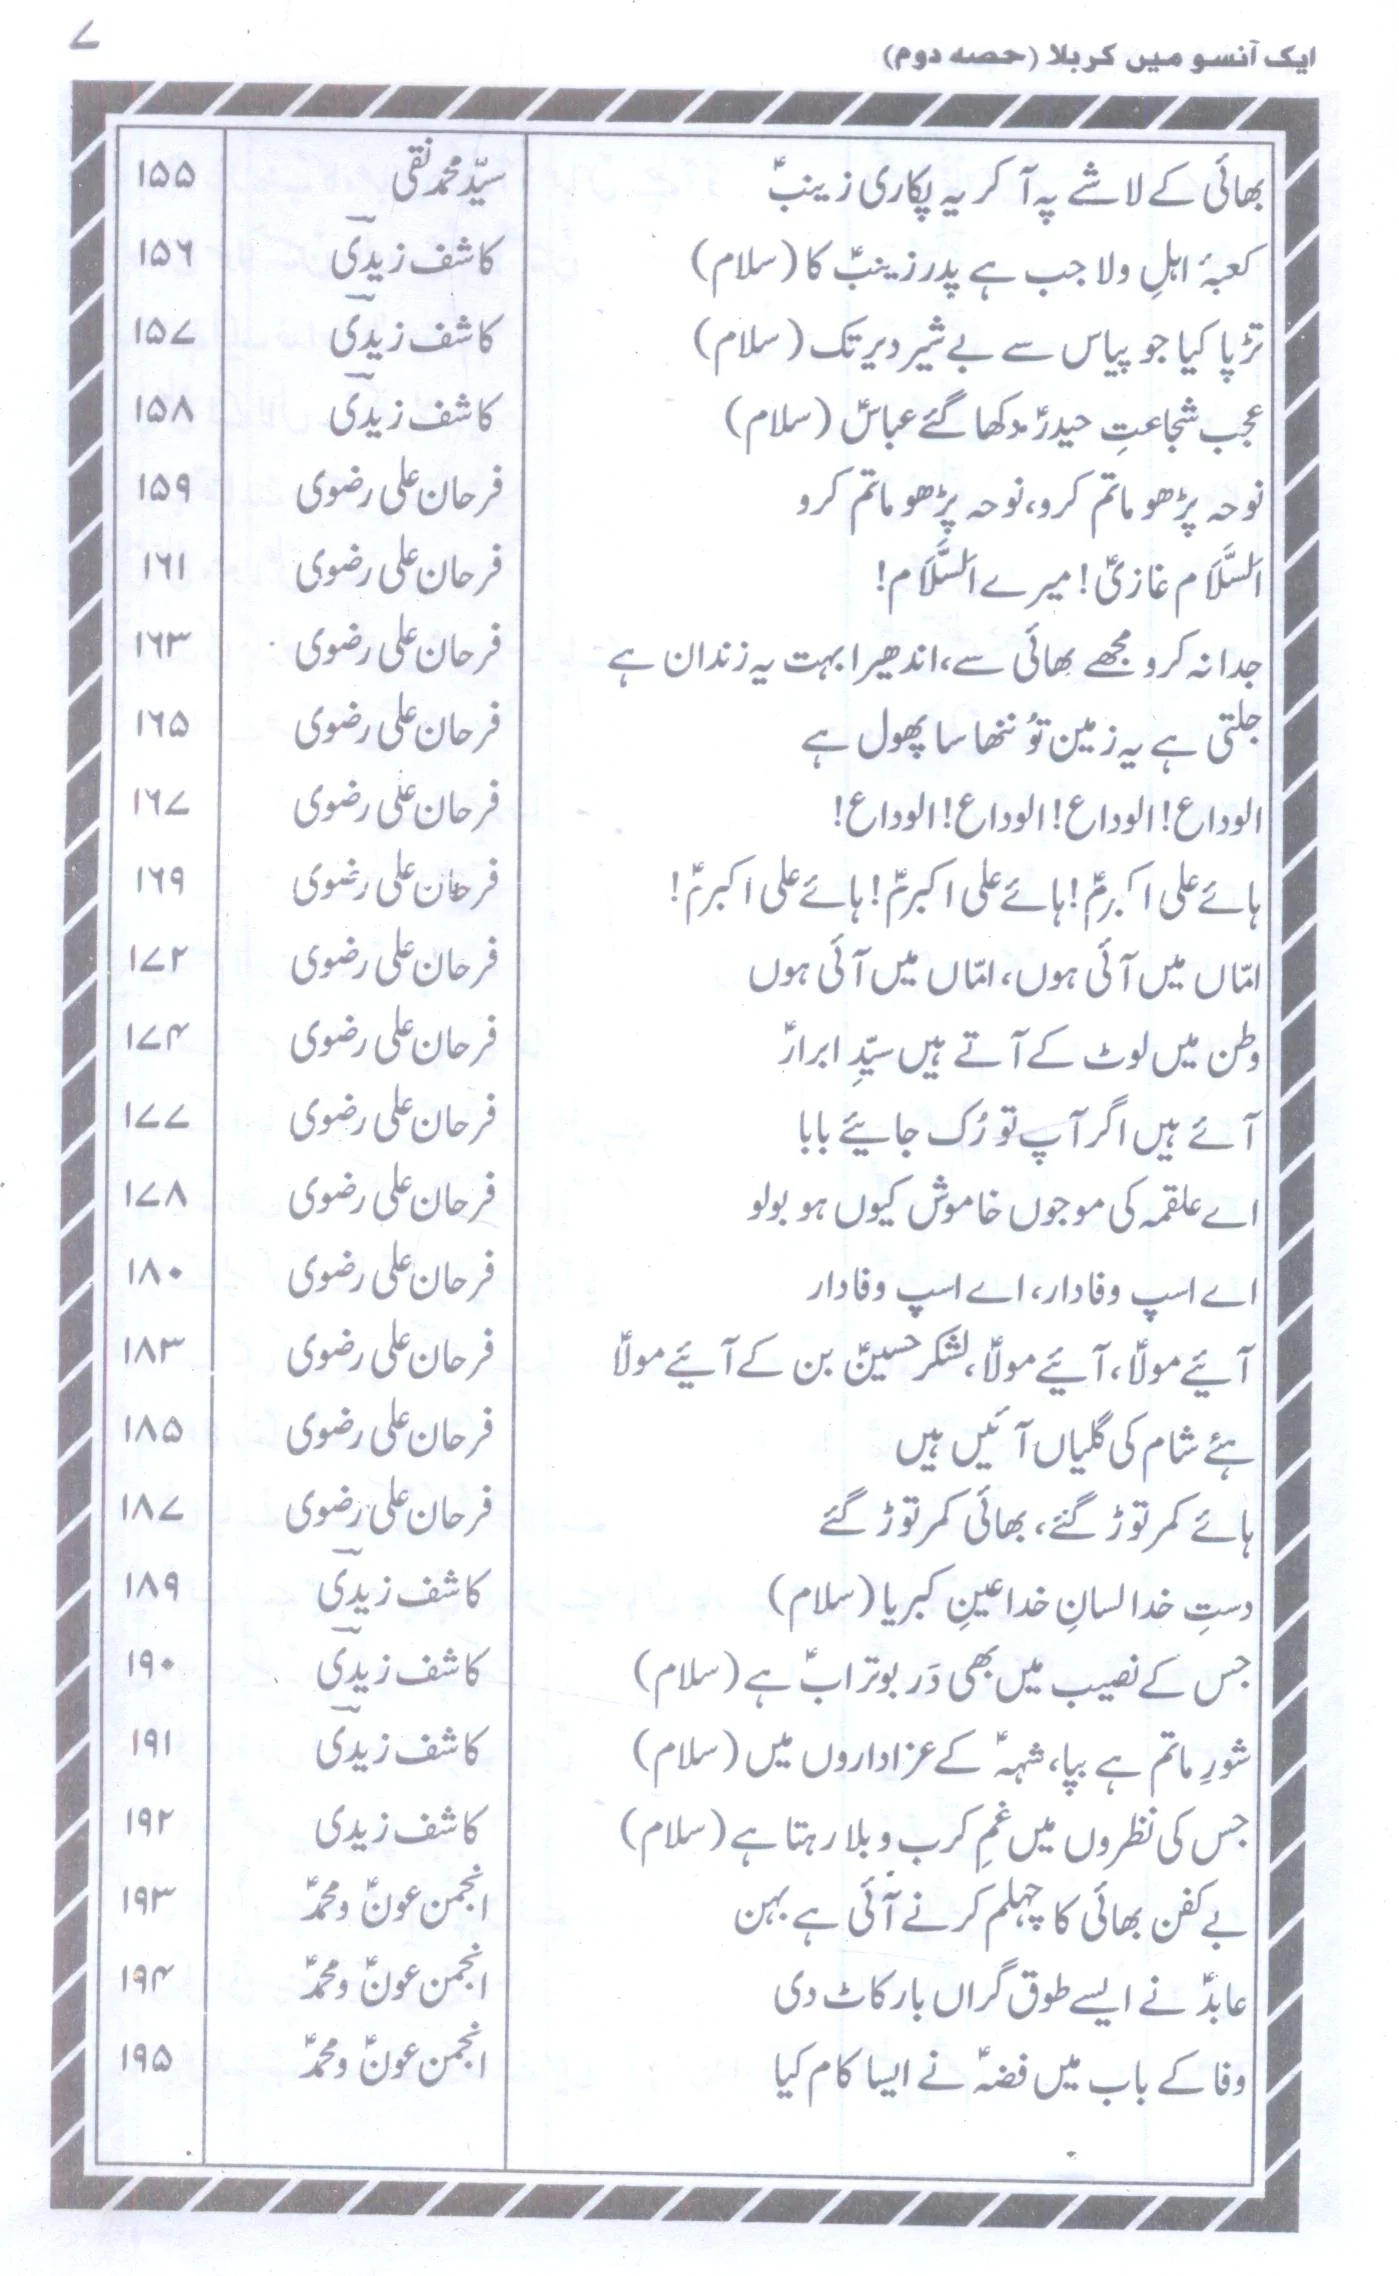 ایک آنسو میں کربلا (حصہ دوم) ۷
بھائی کے لاشے پہ آ کر یہ پکاری زینبؑ سیّد محمد نقی ۱۵۵
کعبۂ اہلِ ولا جب ہے پدر زینبؑ کا (سلام) کاشف زیدیؔ ۱۵۶
تڑپا کیا جو پیاس سے بے شیر دیر تک (سلام) کاشف زیدیؔ ۱۵۷
عجب شجاعتِ حیدرؑ دکھا گئے عباسؑ (سلام) کاشف زیدیؔ ۱۵۸
نوحہ پڑھو ماتم کرو، نوحہ پڑھو ماتم کرو فرحان علی رضوی ۱۵۹
اَلسَّلَام غازیؑ! میرے اَلسَّلَام! فرحان علی رضوی ۱۶۱
جدا نہ کرو مجھے بھائی سے، اندھیرا بہت یہ زندان ہے فرحان علی رضوی ۱۶۳
جلتی ہے یہ زمین تُو ننھا سا پھول ہے فرحان علی رضوی ۱۶۵
الوداع! الوداع! الوداع! الوداع! فرحان علی رضوی ۱۶۷
ہائے علی اکبرؑ! ہائے علی اکبرؑ! ہائے علی اکبرؑ! فرحان علی رضوی ۱۶۹
امّاں میں آئی ہوں، امّاں میں آئی ہوں فرحان علی رضوی ۱۷۲
وطن میں لوٹ کے آتے ہیں سیّدِ ابرارؑ فرحان علی رضوی ۱۷۴
آئے ہیں اگر آپ تو رُک جایئے بابا فرحان علی رضوی ۱۷۷
اے علقمہ کی موجوں خاموش کیوں ہو بولو فرحان علی رضوی ۱۷۸
اے اسپ وفادار، اے اسپ وفادار فرحان علی رضوی ۱۸۰
آئیے مولاؑ، آئیے مولاؑ، لشکر حسینؑ بن کے آئیے مولاؑ فرحان علی رضوی ۱۸۳
ہئے شام کی گلیاں آئیں ہیں فرحان علی رضوی ۱۸۵
ہائے کمر توڑ گئے، بھائی کمر توڑ گئے فرحان علی رضوی ۱۸۷
دستِ خدا لسانِ خدا عینِ کبریا (سلام) کاشف زیدیؔ ۱۸۹
جس کے نصیب میں بھی دَر بوترابؑ ہے (سلام) کاشف زیدیؔ ۱۹۰
شورِ ماتم ہے بپا، شہہؑ کے عزاداروں میں (سلام) کاشف زیدیؔ ۱۹۱
جس کی نظروں میں غمِ کرب و بلا رہتا ہے (سلام) کاشف زیدی ۱۹۲
بے کفن بھائی کا چہلم کرنے آئی ہے بہن انجمن عونؑ و محمدؑ ۱۹۳
عابدؑ نے ایسے طوق گراں بار کاٹ دی انجمن عونؑ و محمدؑ ۱۹۴
وفا کے باب میں فضہؑ نے ایسا کام کیا انجمن عونؑ و محمدؑ ۱۹۵